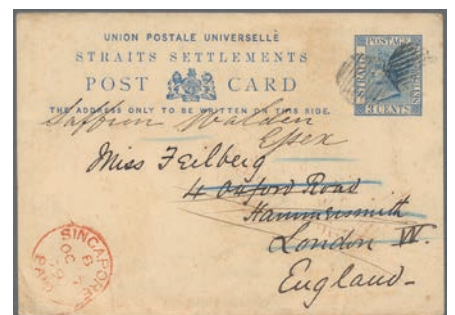 UNION POSTALE UNIVERSELLE
STRAITS SETTLEMENTS
POST CARD
THE ADDRESS ONLY TO BE WRITTEN ON THIS SIDE.
STRAITS
POSTAGE
SETTLEMENTS
3 CENTS
Saffron Walden
Essex
Miss Feilberg
4 Oxford Road
Hammersmith
London W.
England-
SINGAPORE
PAID